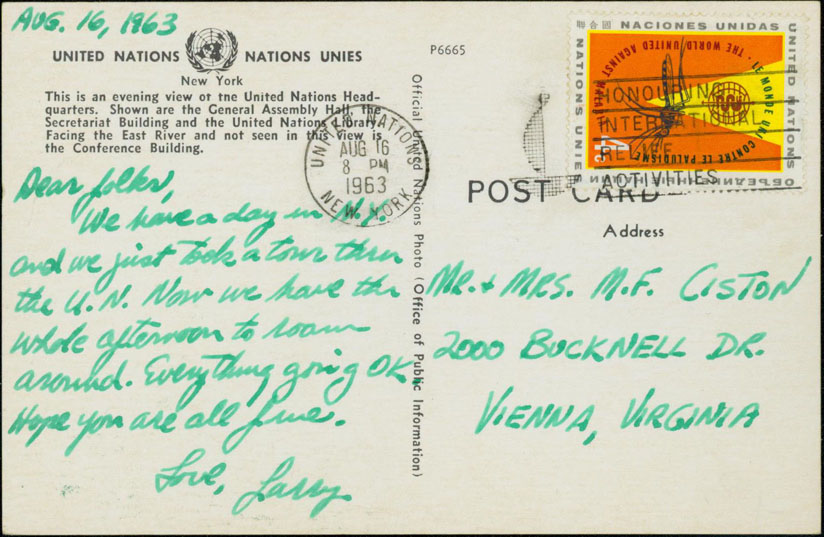 AUG. 16, 1963
UNITED NATIONS NATIONS UNIES
New York
This is an evening view of tne United Nations Head-
quarters. Shown are the General Assembly Hall, the
Secretariat Building and the United Nations Library.
Facing the East River and not seen in this view is
the Conference Building.
Dear folks,
We have a day in N.Y.
and we just took a tour thru
the U.N. Now we have the
whole afternoon to roam
around. Everything going OK.
Hope you are all fine.
Love, Larry
Official United Nations Photo (Office of Public Information)
P6665
UNITED NATIONS
AUG 16
8 PM
1963
NEW YORK
HONOURING
INTERNATIONAL
RELIEF
ACTIVITIES
NACIONES UNIDAS
UNITED NATIONS
NATIONS UNIES
THE WORLD UNITED AGAINST MALARIA
LE MONDE UNI CONTRE LE PALUDISME
4c
POST CARD
Address
MR. + MRS. M.F. CISTON
2000 BUCKNELL DR.
VIENNA, VIRGINIA